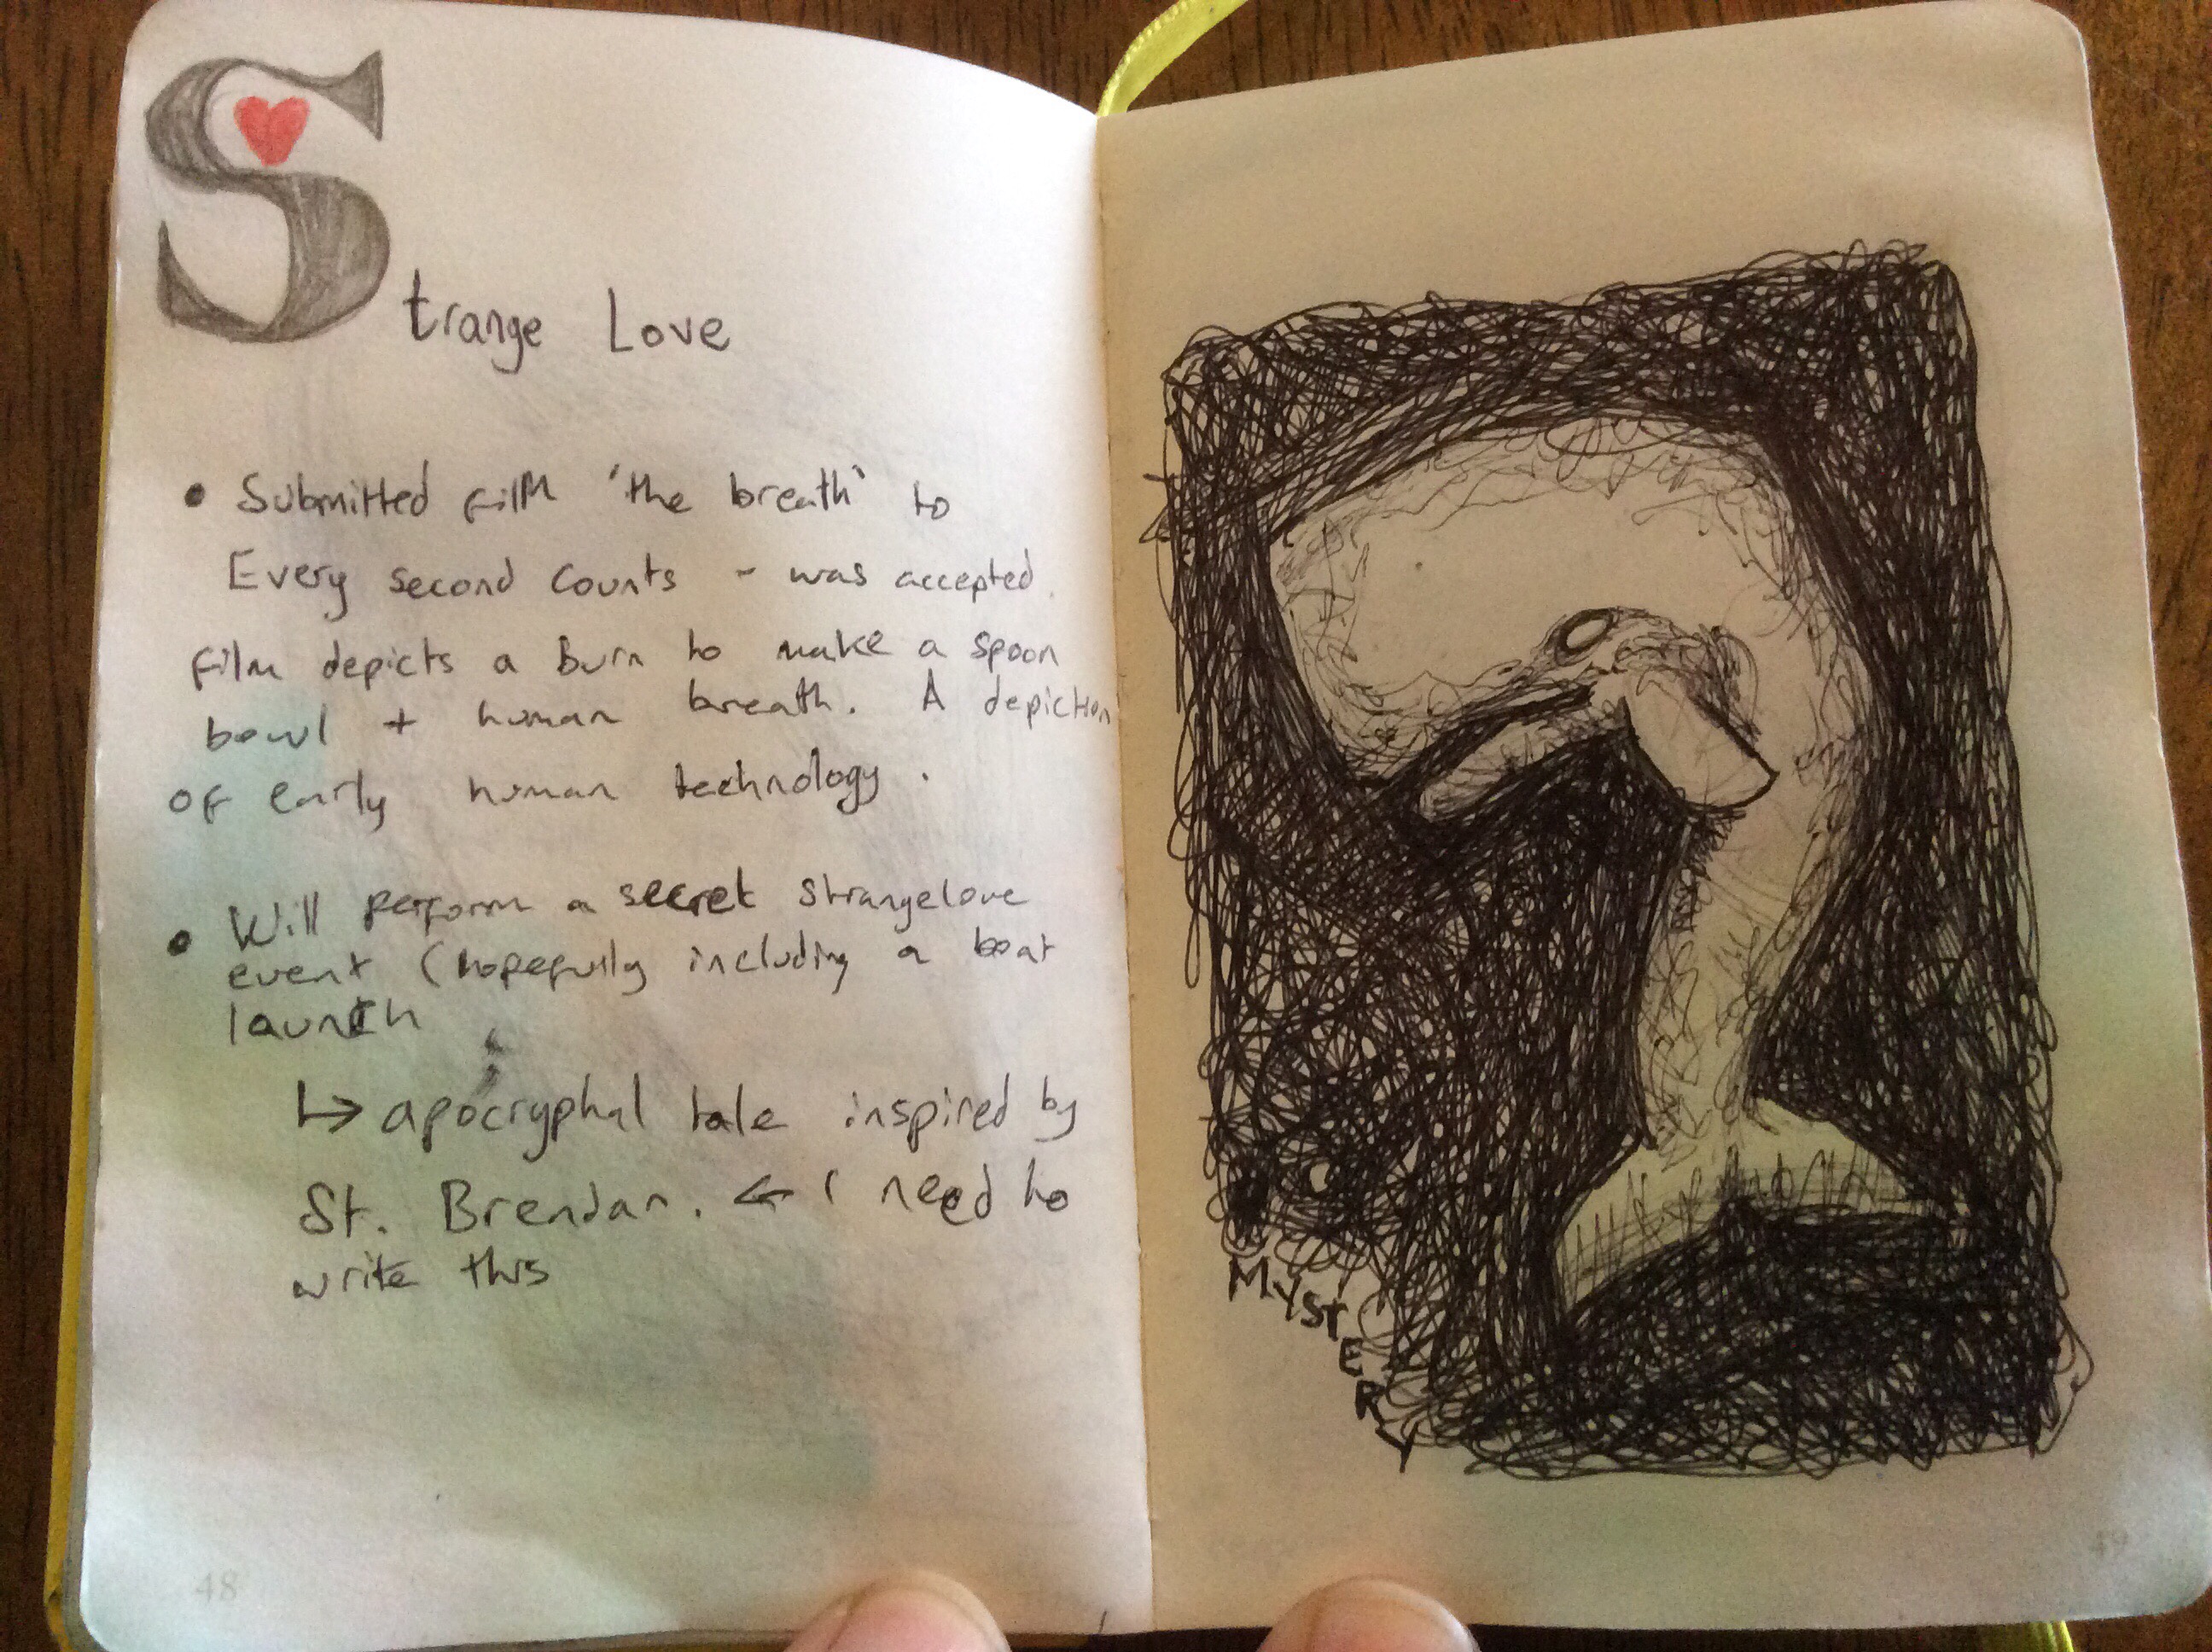 Strange Love
• Submitted film 'the breath' to
Every second counts - was accepted.
film depicts a burn to make a spoon
bowl + human breath. A depiction
of early human technology.
• Will perform a secret strangelove
event (hopefully including a boat
launch
↳ apocryphal tale inspired by
St. Brendan. ← I need to
write this
48
MYSTERY
49